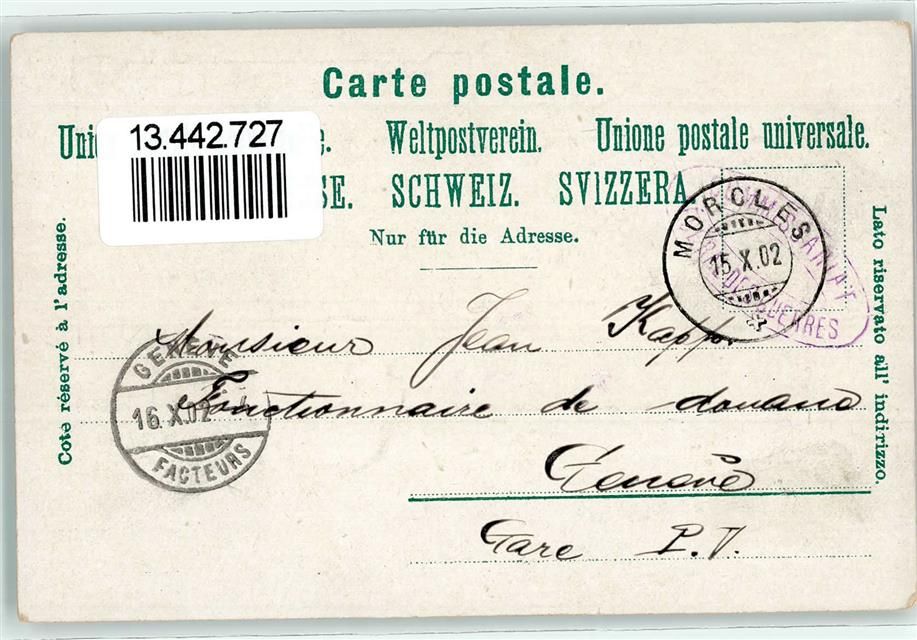 Carte postale.
13.442.727
Weltpostverein. Unione postale universale.
SE. SCHWEIZ. SVIZZERA.
Nur für die Adresse.
Coté réservé à l'adresse.
Lato riservato all' indirizzo.
MORCLES
15.X.02
GUERRES
Monsieur Jean Kapp
Fonctionnaire de douane
Genève
Gare P.V.
GENÈVE
16.X.02
FACTEURS